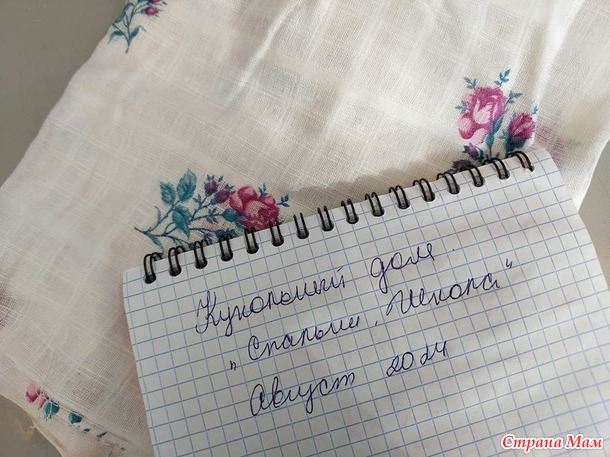 Кукольный дом.
"Спальни, Школа"
Август 2024
Страна Мам